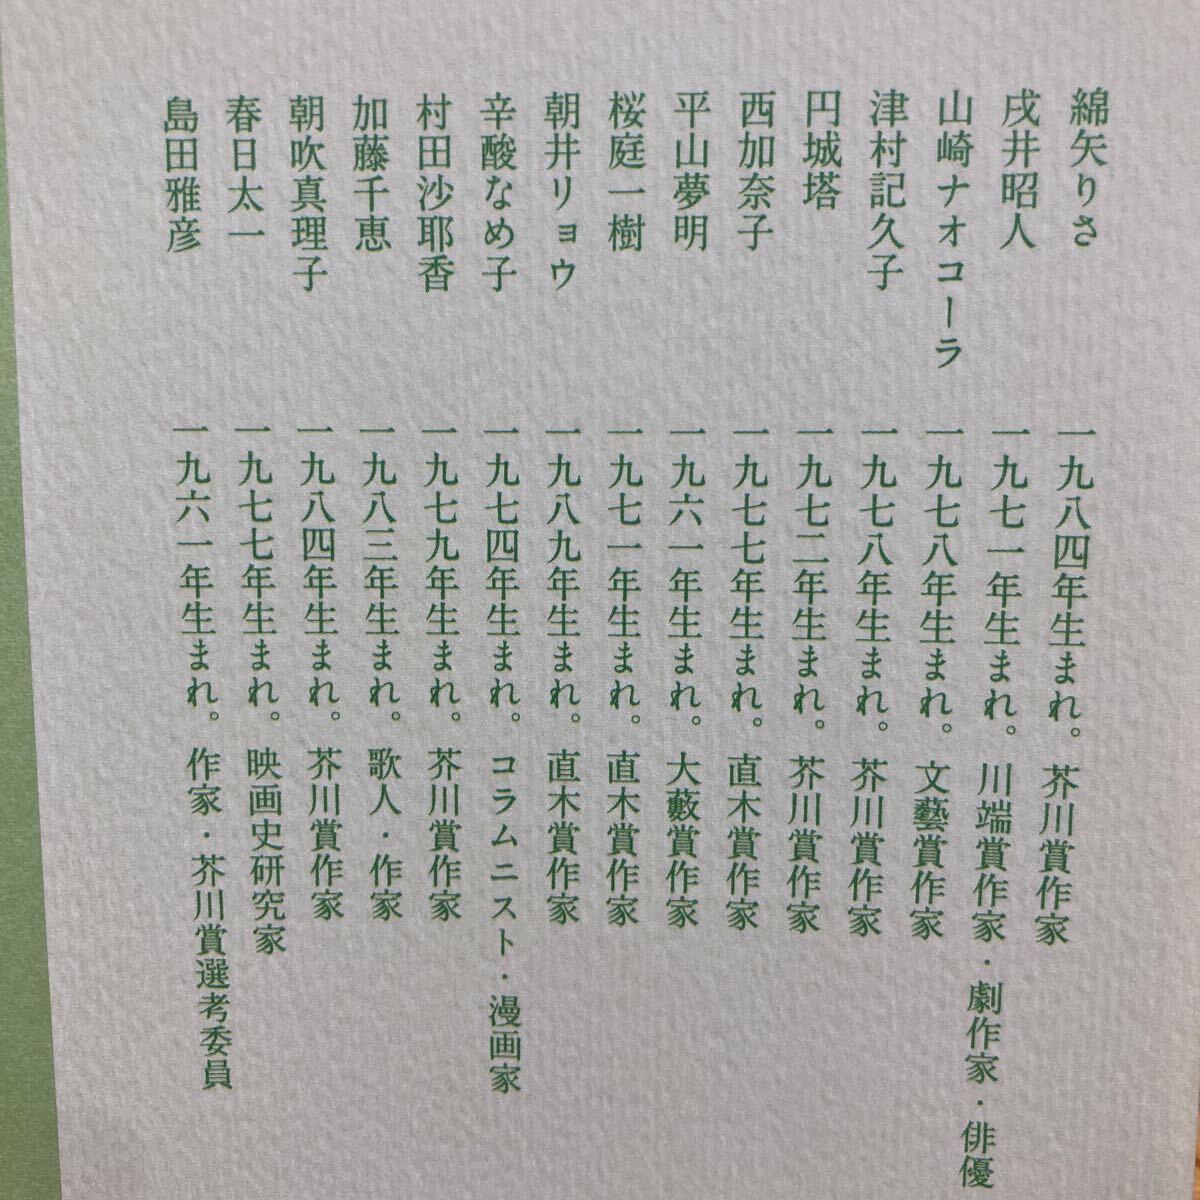 綿矢りさ 一九八四年生まれ。芥川賞作家
戌井昭人 一九七一年生まれ。川端賞作家・劇作家・俳優
山崎ナオコーラ 一九七八年生まれ。文藝賞作家
津村記久子 一九七八年生まれ。芥川賞作家
円城塔 一九七二年生まれ。芥川賞作家
西加奈子 一九七七年生まれ。直木賞作家
平山夢明 一九六一年生まれ。大藪賞作家
桜庭一樹 一九七一年生まれ。直木賞作家
朝井リョウ 一九八九年生まれ。直木賞作家
辛酸なめ子 一九七四年生まれ。コラムニスト・漫画家
村田沙耶香 一九七九年生まれ。芥川賞作家
加藤千恵 一九八三年生まれ。歌人・作家
朝吹真理子 一九八四年生まれ。芥川賞作家
春日太一 一九七七年生まれ。映画史研究家
島田雅彦 一九六一年生まれ。作家・芥川賞選考委員